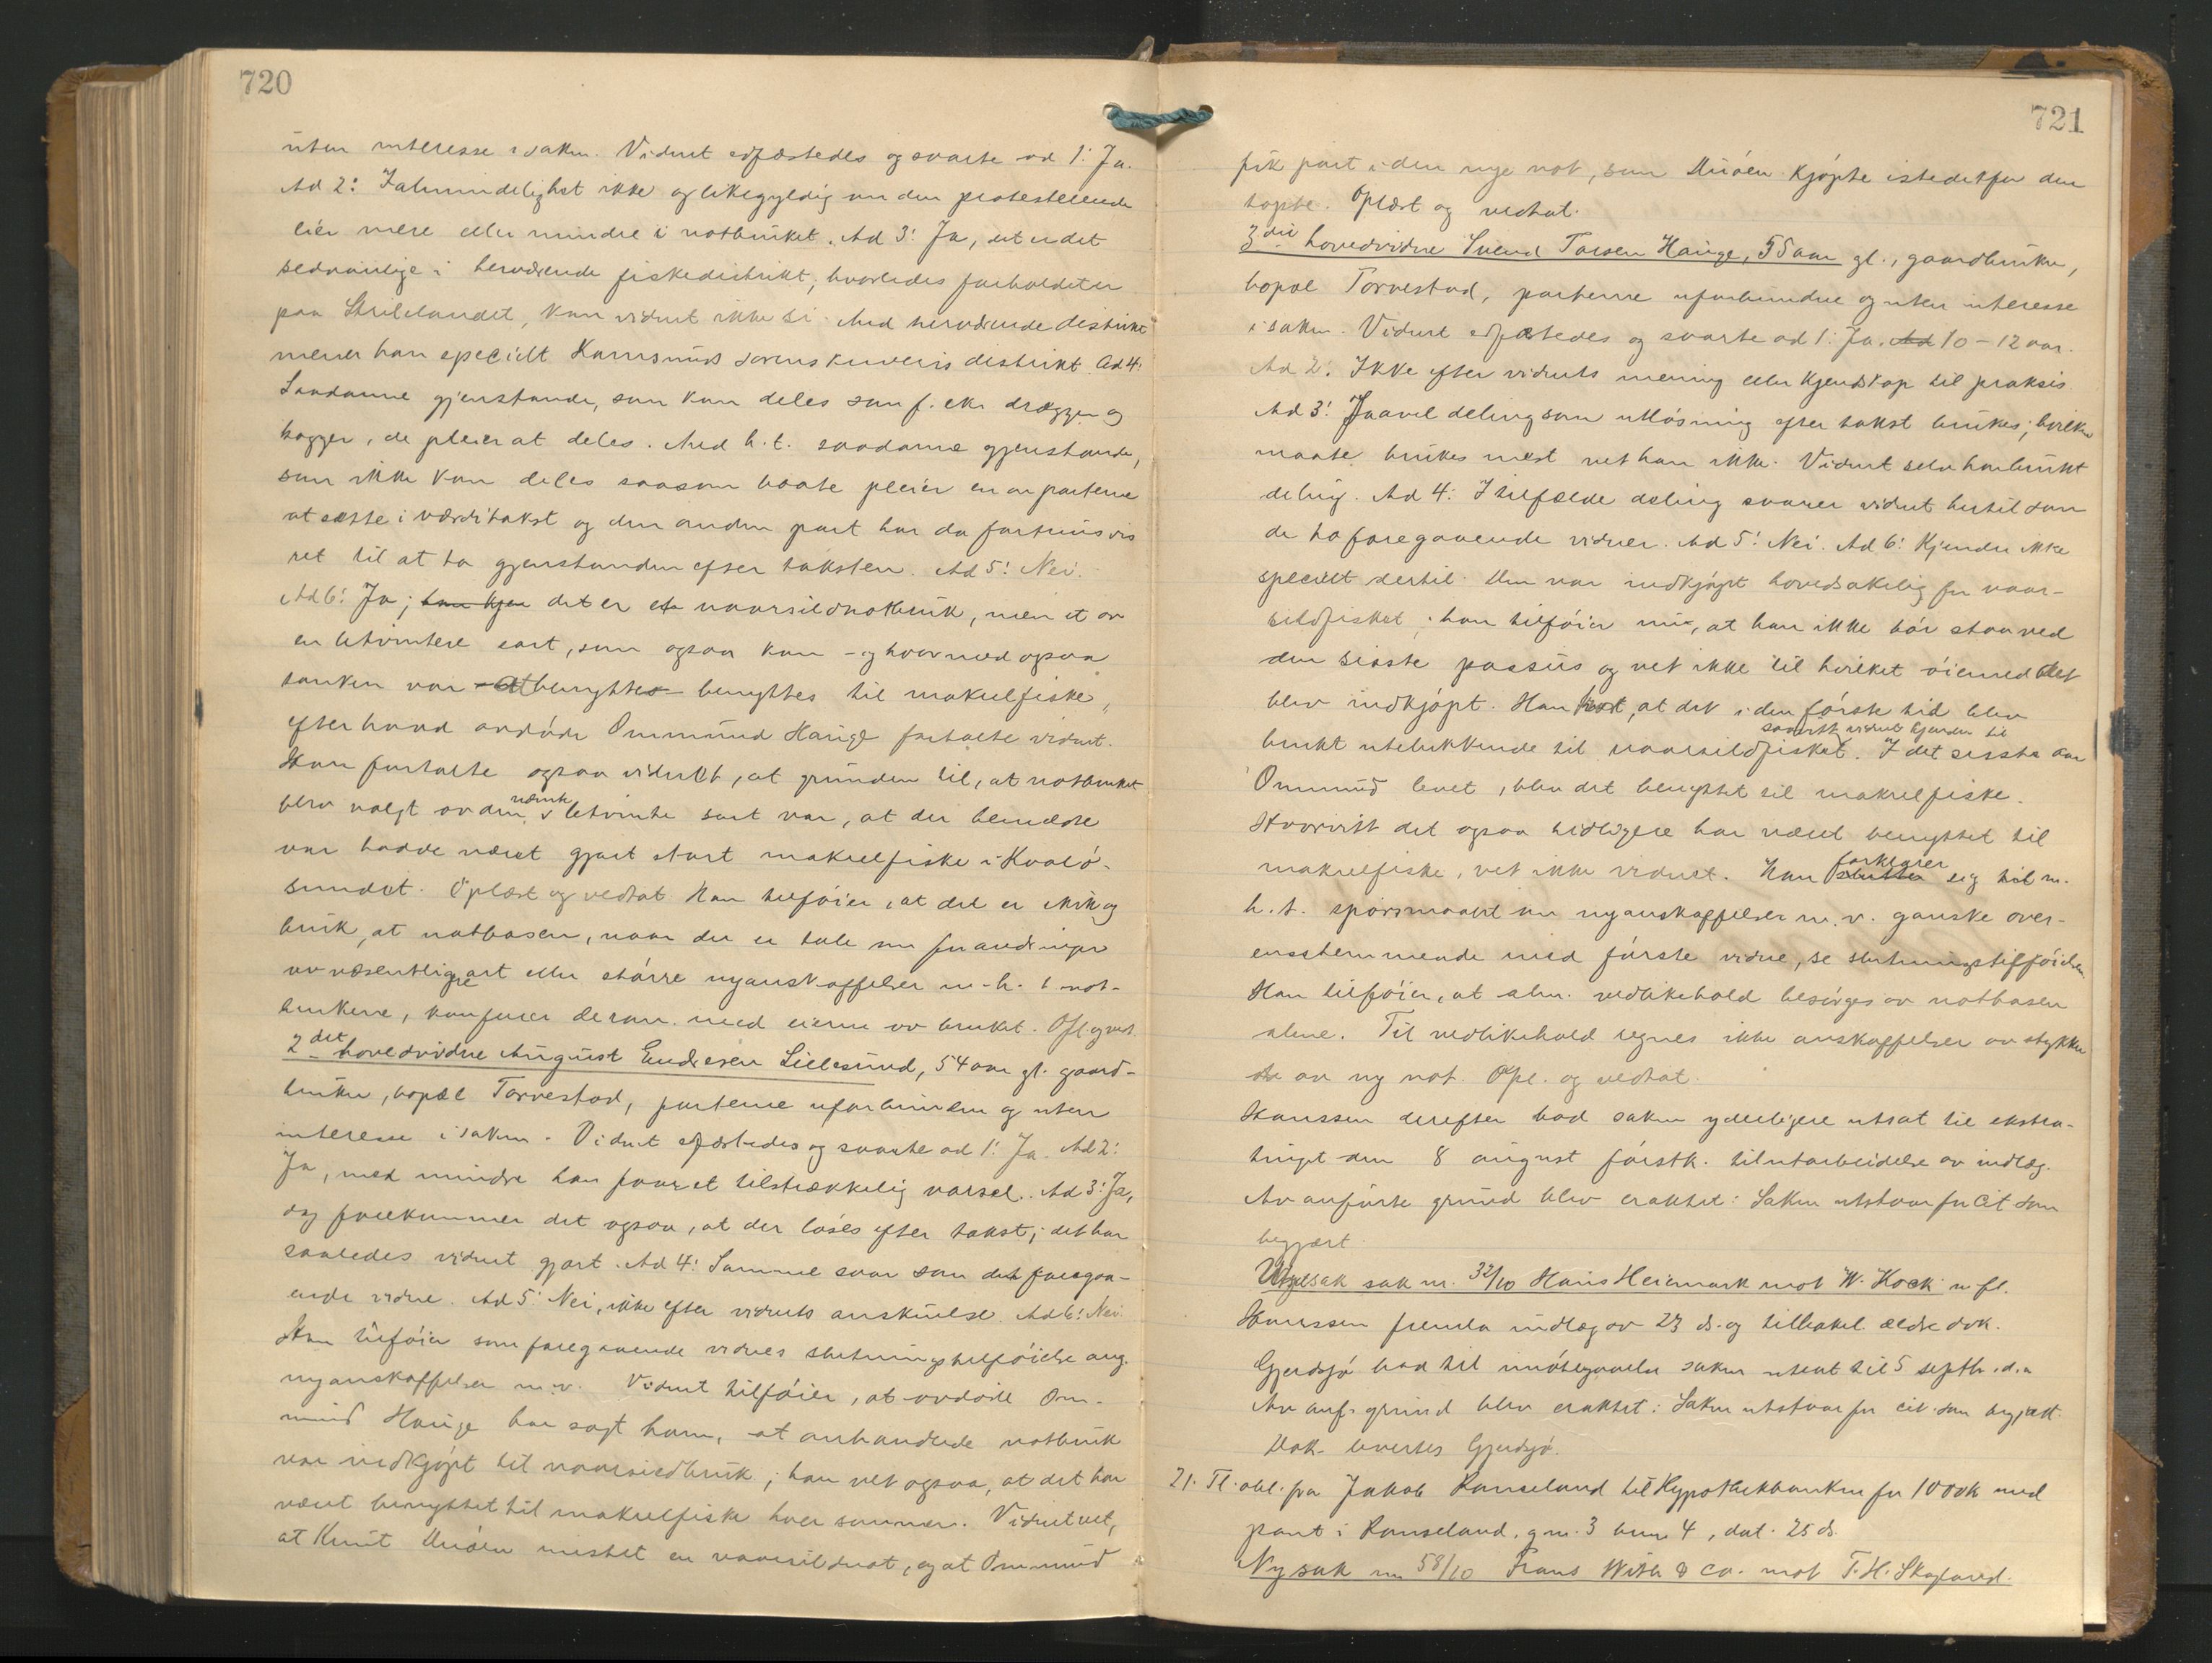 720
uten interesse i saken. Vidnet edfæstedes og svarte ad 1: Ja.
Ad 2: I almindelighet ikke og likegyldig om den protesterende
eier mere eller mindre i notbruket. Ad 3: Ja, det er det
sedvanlige i herværende fiskedistrikt, hvorledes forholdet er
paa Strilelandet, kan vidnet ikke si. Med herværende distrikt
mener han specielt Karmsunds sorenskriveris distrikt. Ad 4:
Saadanne gjenstande, som kan deles som f. eks. drægger og
kagger, de pleier at deles. Med h.t. saadanne gjenstande,
som ikke kan deles saasom baate pleier en av parterne
at sætte i værditakst og den anden part har da fortrinsvis
ret til at ta gjenstanden efter taksten. Ad 5: Nei.
Ad 6: Ja; han kjen det er et vaarsildnotbruk, men et av
en letvintere sart, som ogsaa kan - og hvormed ogsaa
tanken var at benyttes benyttes til makrelfiske,
efter hvad avdøde Ommund Hauge fortalte vidnet.
Han fortalte ogsaa vidnet, at grunden til, at notbruket
blev valgt av den nævnte letvinte sart var, at der bemeldte
var hadde været gjort stort makrelfiske i Kvalø-
sundet. Oplæst og vedtat. Han tilføier, at det er skik og
bruk, at notbasen, naar der er tale om forandringer
av væsentligere art eller større nyanskaffelser m.h.t. not-
bruken, konfererer derom med eierne av bruket. Opl. og vedt.
2det hovedvidne August Endresen Lillesund, 54 aar gl. gaard-
bruker, bopæl Torvestad, parterne uforbunden og uten
interesse i saken. Vidnet edfæstedes og svarte ad 1: Ja. Ad 2:
Ja, med mindre han faar et tilstrækkelig varsel. Ad 3: Ja,
dog forekommer det ogsaa, at der løses efter takst; det har
saaledes vidnet gjort. Ad 4: Samme svar som det foregaa-
ende vidne. Ad 5: Nei, ikke efter vidnets anskuelse. Ad 6: Nei.
Han tilføier som foregaaende vidnes slutningstilføielse ang.
nyanskaffelser m.v. Vidnet tilføier, at avdøde Om-
mund Hauge har sagt ham, at omhandlede notbruk
var indkjøpt til vaarsildbruk; han vet ogsaa, at det har
været benyttet til makrelfiske hver sommer. Vidnet vet,
at Knut Munøen mistet en vaarsildnot, og at Ommund
721
fik part i den nye not, som Munøen kjøpte istedetfor den
tapte. Oplæst og vedtat.
3die hovedvidne Svend Torsen Hauge, 55 aar gl., gaardbruker,
bopæl Torvestad, parterne uforbunden og uten interesse
i saken. Vidnet edfæstedes og svarte ad 1: Ja. Ad 10 - 12 aar.
Ad 2: Ikke efter vidnets mening eller kjendskap til praksis
Ad 3: Saavel deling som utløsning efter takst brukes; hvilken
maate brukes mest vet han ikke. Vidnet selv har brukt
deling. Ad 4: I tilfælde deling svarer vidnet hertil som
de to foregaaende vidner. Ad 5: Nei. Ad 6: Kjender ikke
specielt dertil. Den var indkjøpt hovedsakelig for vaar-
sildfisket; han tilføier nu, at han ikke tør staa ved
den sisste passus og vet ikke til hvilket øiemed det
blev indkjøpt. Han vet, at det i den første tid blev
brukt utelukkende til vaarsildfisket saavitt vidnet kjender til. I det sisste aar
Ommund levet, blev det benyttet til makrelfiske.
Hvorvidt det ogsaa tidligere har været benyttet til
makrelfiske, vet ikke vidnet. Han slutter forklarer sig til m.
h.t. spørsmaalet om nyanskaffelser m.v. ganske over-
ensstemmende med første vidne, se slutningstilføielsen.
Han tilføier, at alm. vedlikehold besørges av notbasen
alene. Til vedlikehold regnes ikke anskaffelser av stykker
av ny not. Opl. og vedtat.
Hanssen derefter bad saken yderligere utsat til ekstra-
tinget den 8 august førstk. til utarbeidelse av indlæg.
Av anførte grund blev eraktet: Saken utstaar for cit som
begjært.
Utgilsak sak nr. 32/10 Hans Heiemark mot W. Kock m. fl.
Hanssen fremla indlæg av 23 ds. og tilbakel. ældre dok.
Gjerdsjø bad til imøtegaaelse saken utsat til 5 septbr. d.a.
Av anf. grund blev eraktet: Saken utstaar for cit. som begjært.
Dok. levertes Gjerdsjø.
21. Tl. obl. fra Jakob Ramseland til Hypothekbanken for 1000 k med
pant i Ramseland, g.nr. 3 b.nr. 4, dat. 25 ds.
Ny sak nr. 58/10 Frans With & Co. mot T.H. Skogland.